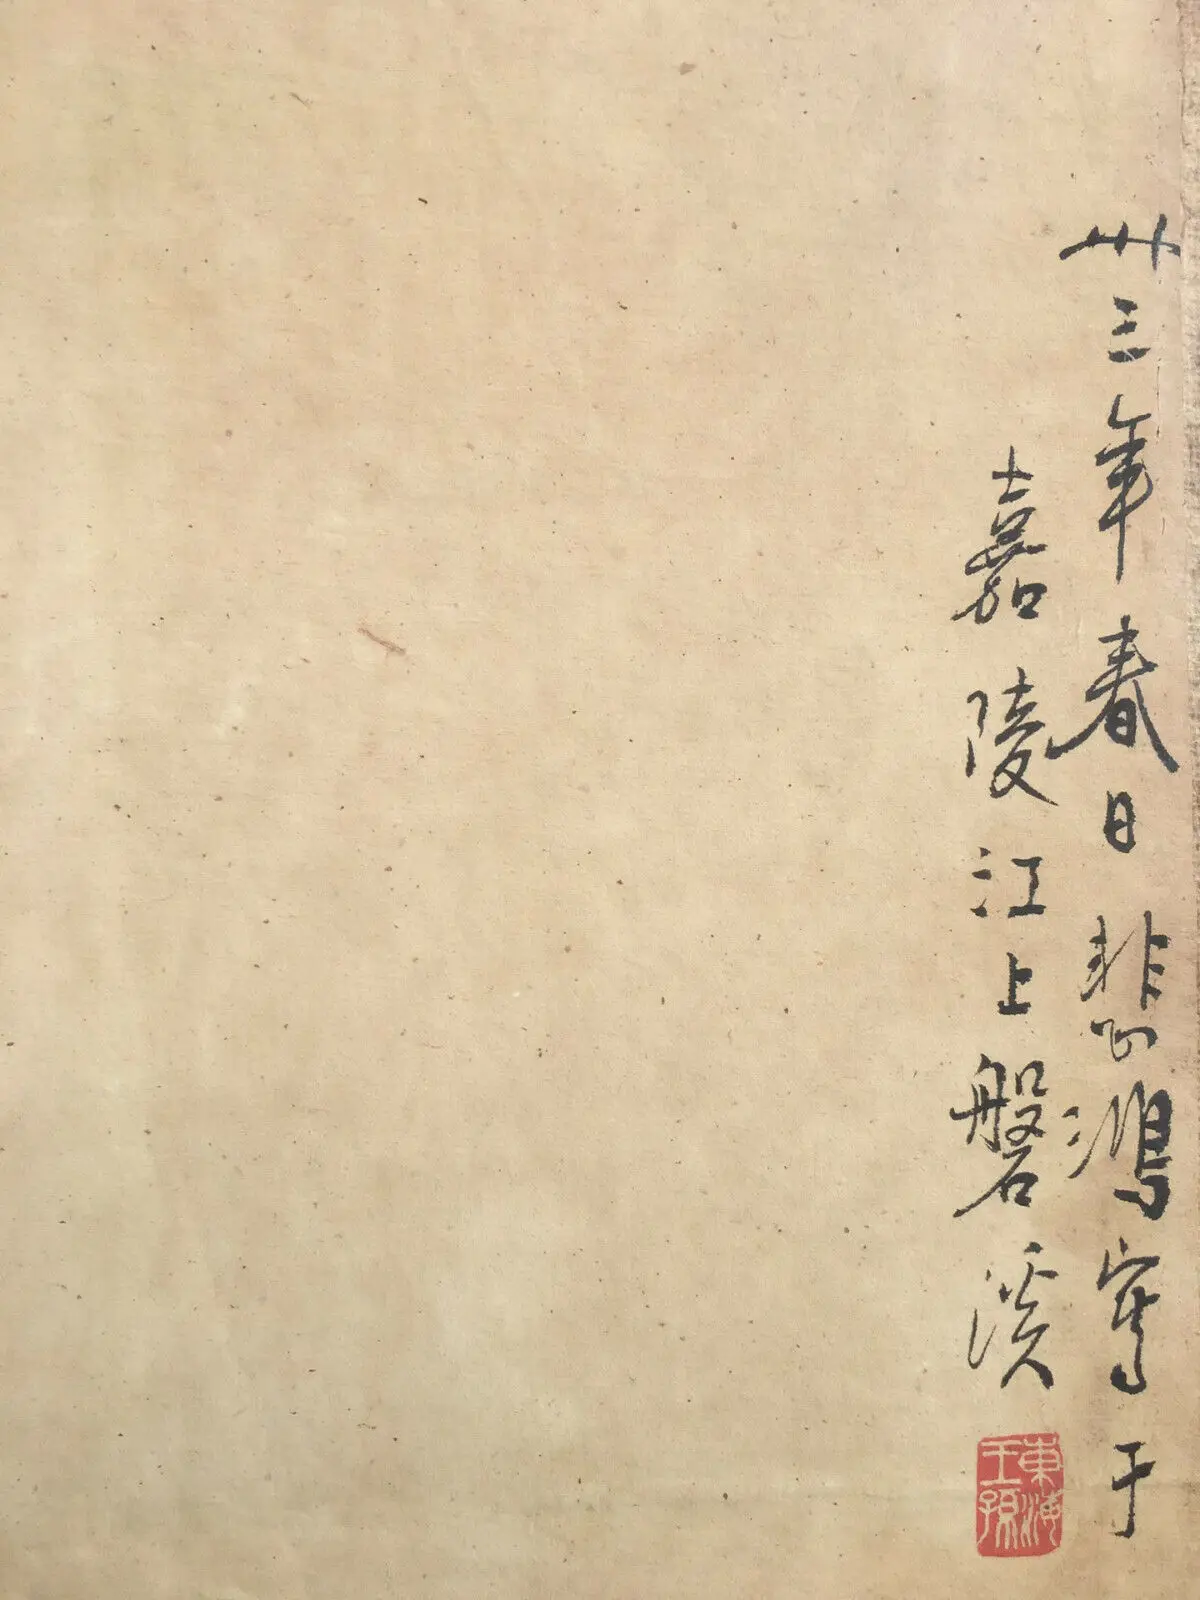 卅三年春日悲鴻寫于
嘉陵江上磐溪
東海
王孫